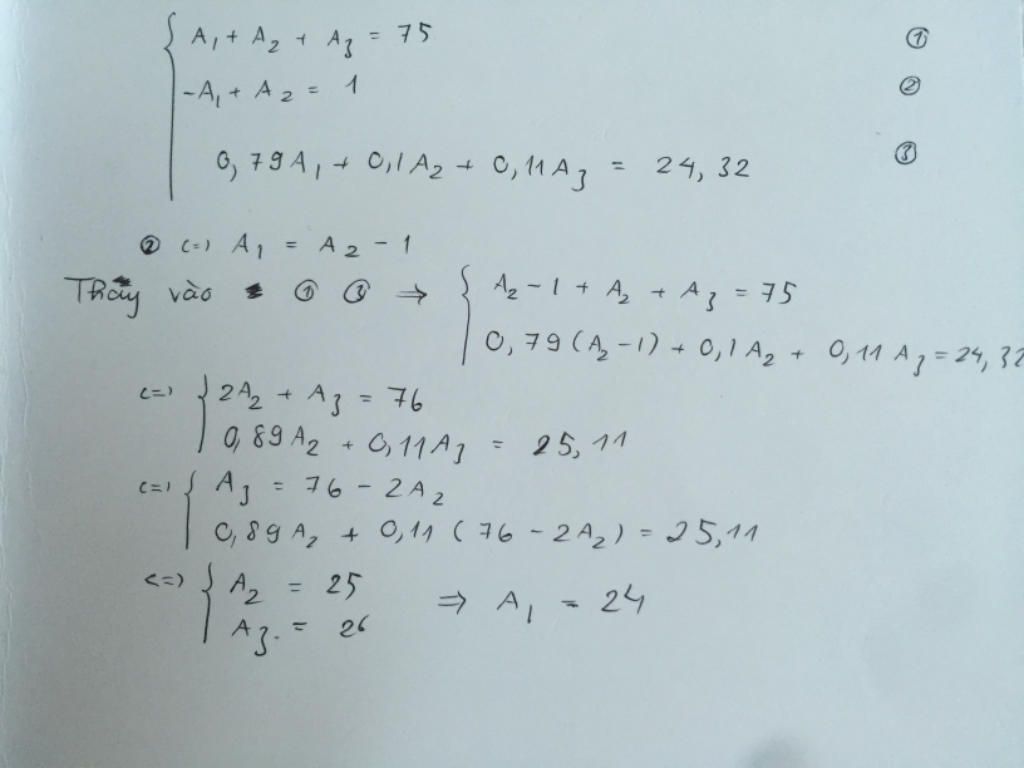 A₁ + A₂ + A₃ = 75 ①
-A₁ + A₂ = 1 ②
0,79A₁ + 0,1A₂ + 0,11A₃ = 24,32 ③
② (=) A₁ = A₂ - 1
Thấy vào ① ③ ⇒ A₂ - 1 + A₂ + A₃ = 75
0,79(A₂-1) + 0,1A₂ + 0,11A₃ = 24,32
(=) 2A₂ + A₃ = 76
0,89A₂ + 0,11A₃ = 25,11
(=) A₃ = 76 - 2A₂
0,89A₂ + 0,11(76 - 2A₂) = 25,11
<=) A₂ = 25 ⇒ A₁ = 24
A₃ = 26